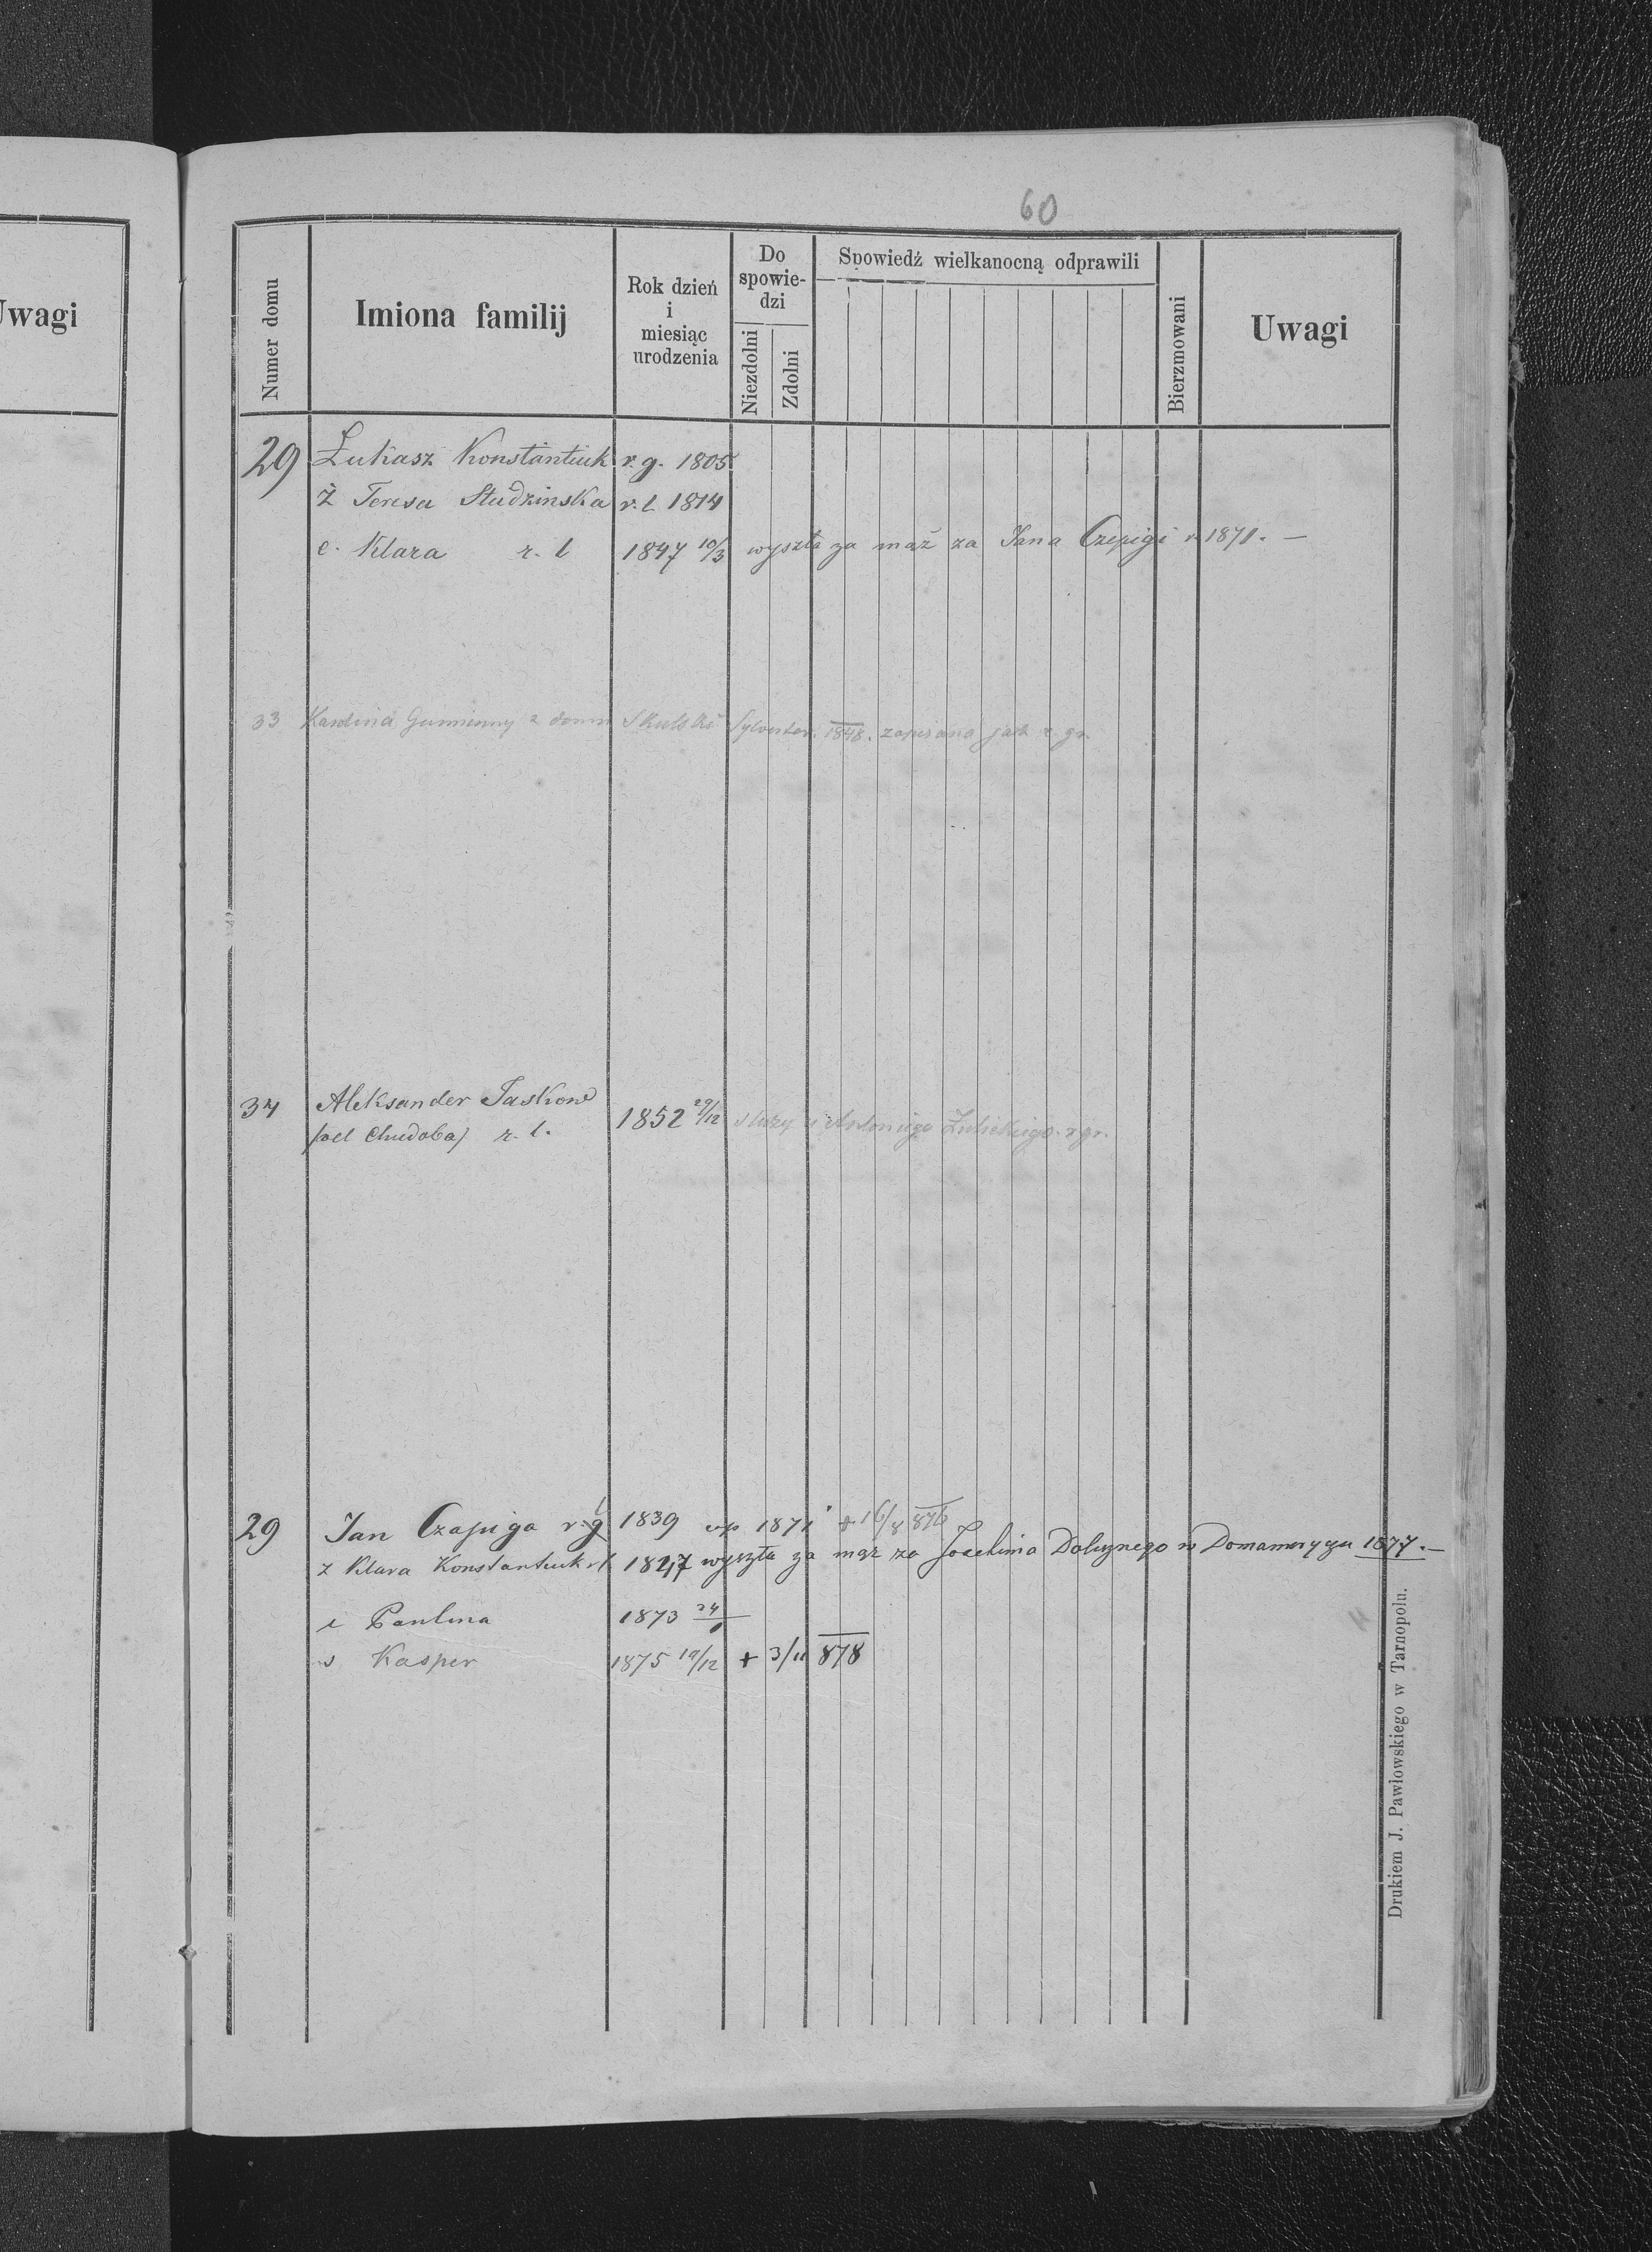 Uwagi
60
Numer domu
Imiona familij
Rok dzień
i
miesiąc
urodzenia
Do
spowie-
dzi
Niezdolni
Zdolni
Spowiedź wielkanocną odprawili
Bierzmowani
Uwagi
29 Łukasz Konstantiuk r. g. 1805
Ż Teresa Studzinska r. l. 1814
c. Klara r. l 1847 10/3 wyszła za mąż za Jana Czepigi r. 1871. —
33 Karolina Gumienny z domu Skulski Sylwester. 1848. zapisana jak r. gr.
34 Aleksander Taskow 1852 29/12 służy u Antoniego r gr.
(vel Chudoba) r. l.
29 Jan Czapiga r. g l 1839 wp 1871 + 16/8 876
z Klara Konstantiuk rl 1847 wyszła za mąż za Joachima w Domamorycza 1877. —
c Paulina 1873 24/
s Kasper 1875 19/12 + 3/11 878
Drukiem J. Pawłowskiego w Tarnopolu.